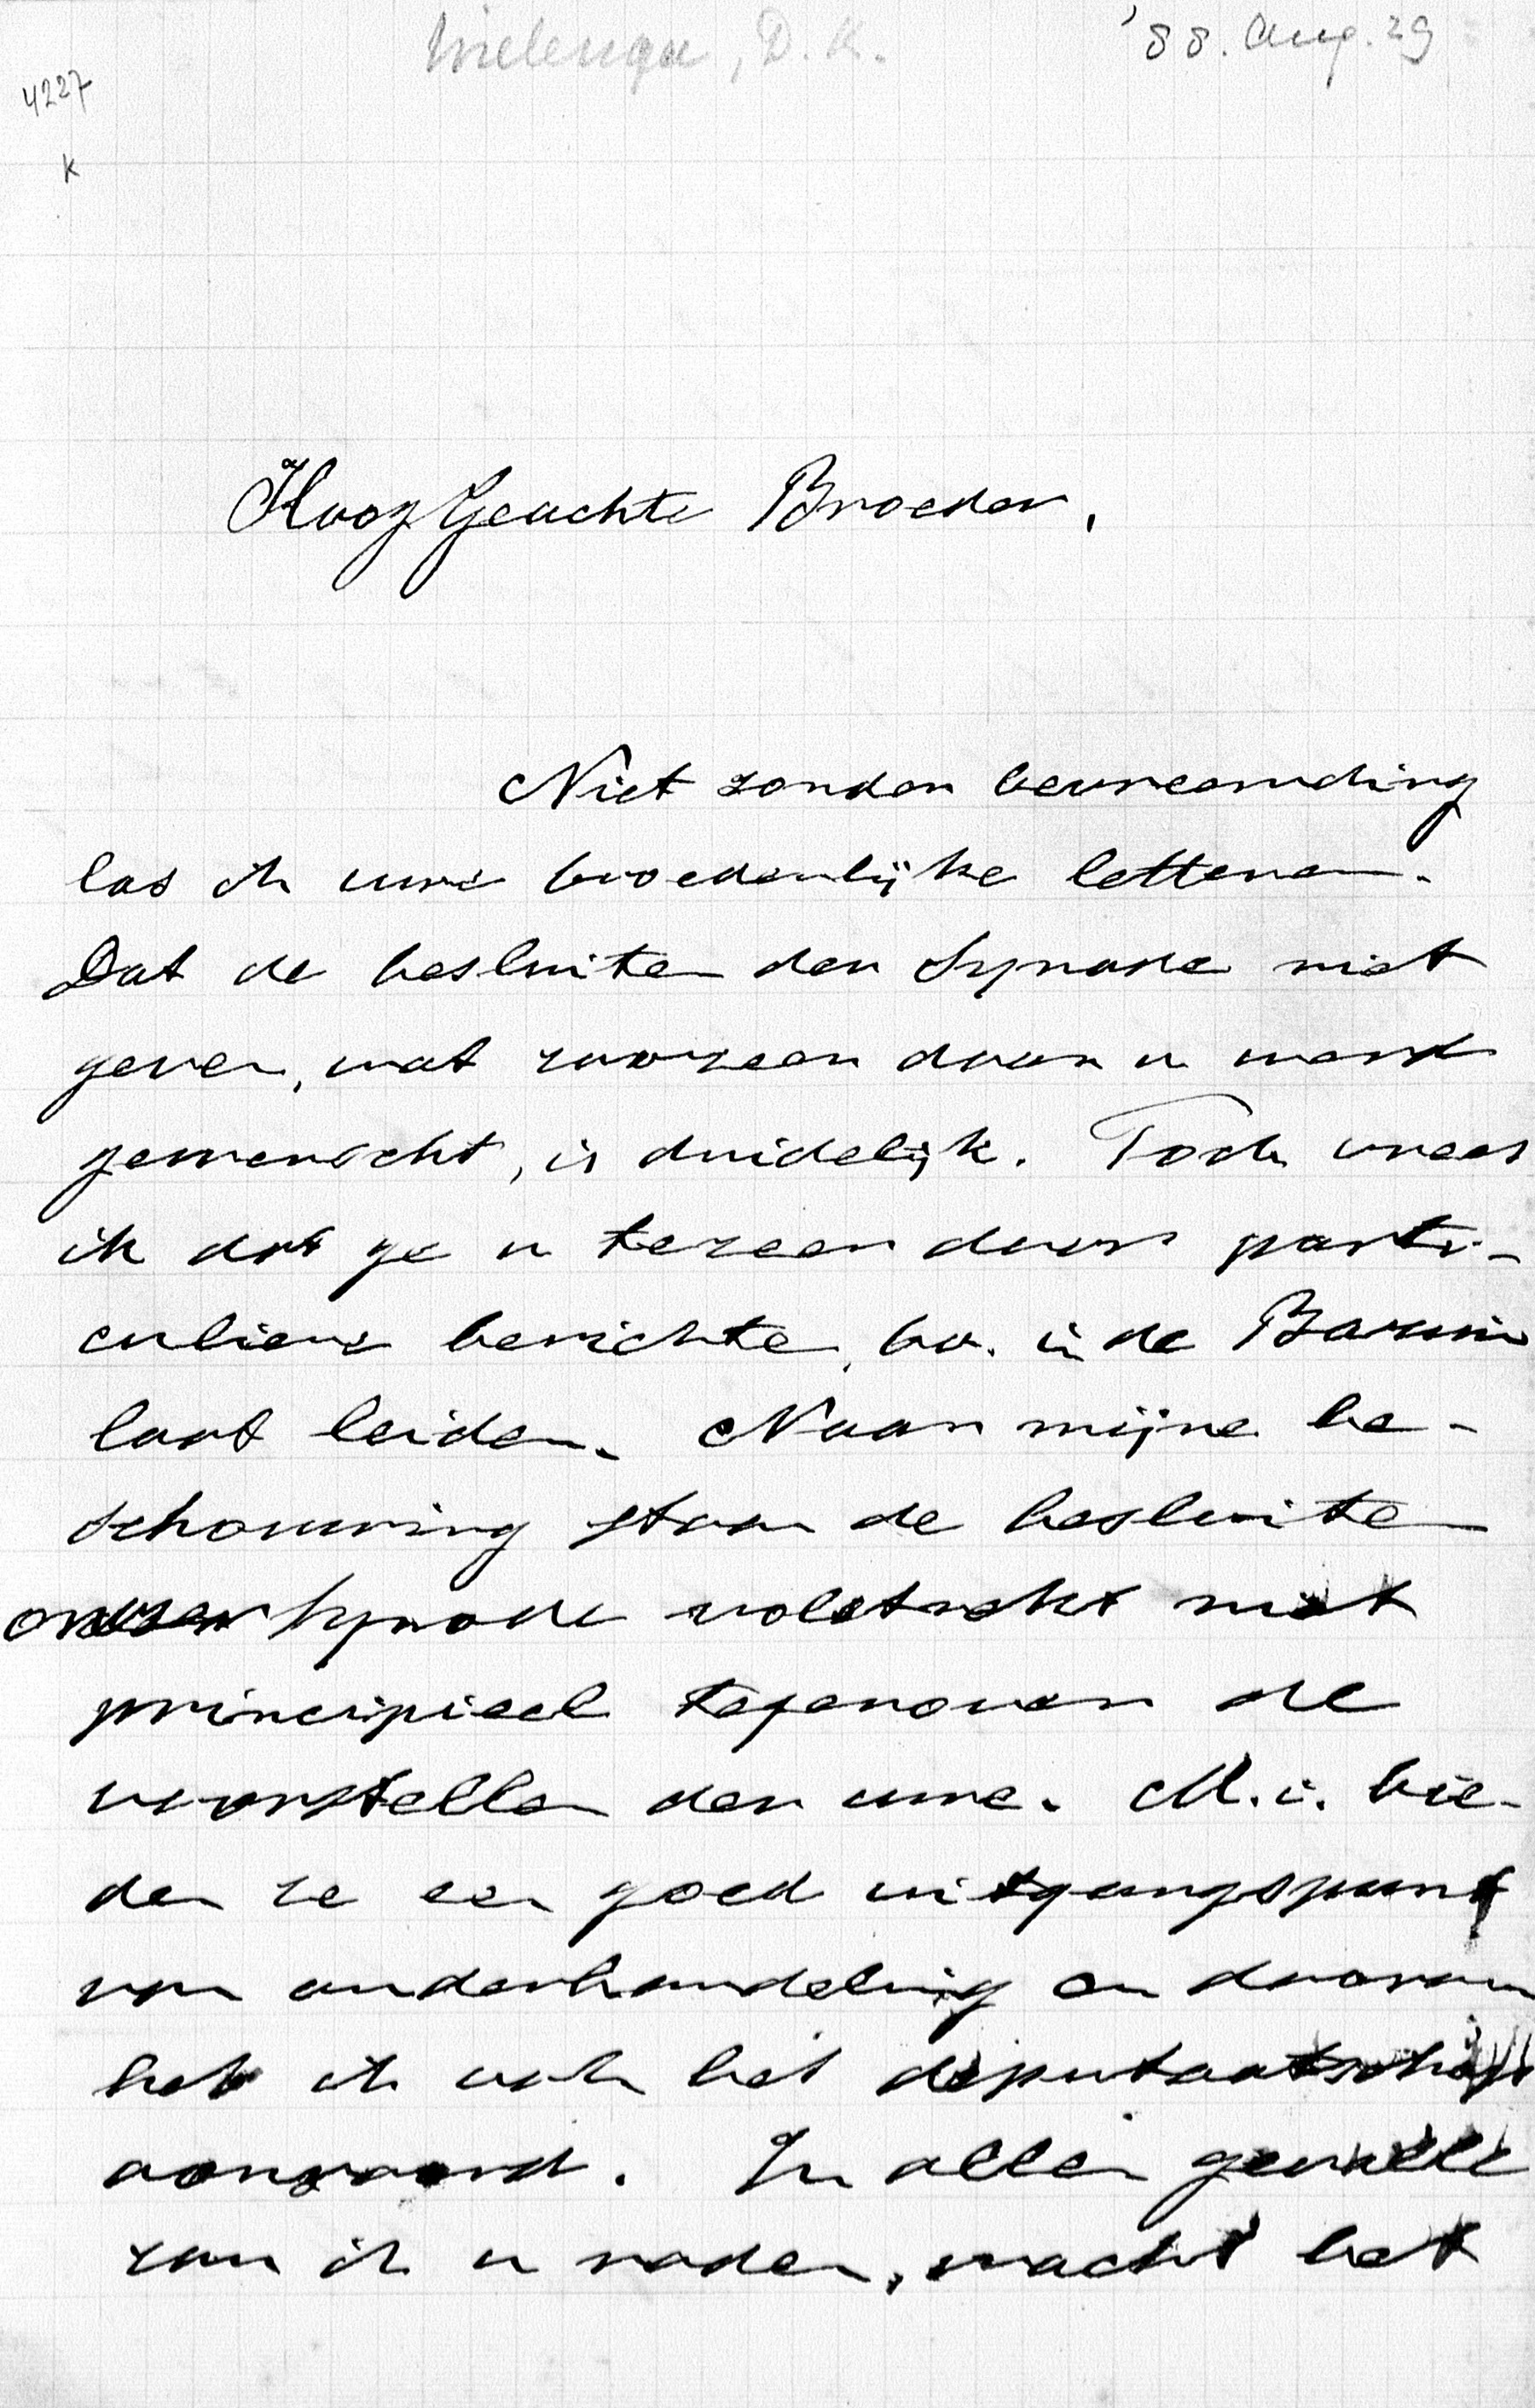 Wielenga, D.K. '88. Aug. 29
4227
K
HoogGeachte Broeder,
Niet zonder bevreemding
las ik uwe broederlijke letteren.
Dat de besluiten der Synode niet
geven, wat zoozeer door u werd
gewenscht, is duidelijk. Toch vrees
ik dat ge u tezeer door parti-
culiere berichten, bv. in de Bazuin
laat leiden. Naar mijne be-
schouwing staan de besluiten
onzer Synode volstrekt niet
principieel tegenover de
voorstellen der uwe. M.i. bie-
den ze een goed uitgangspunt
van onderhandeling en daarom
heb ik ook het deputaatschap
aanvaard. In allen gevalle
zou ik u raden, wacht het